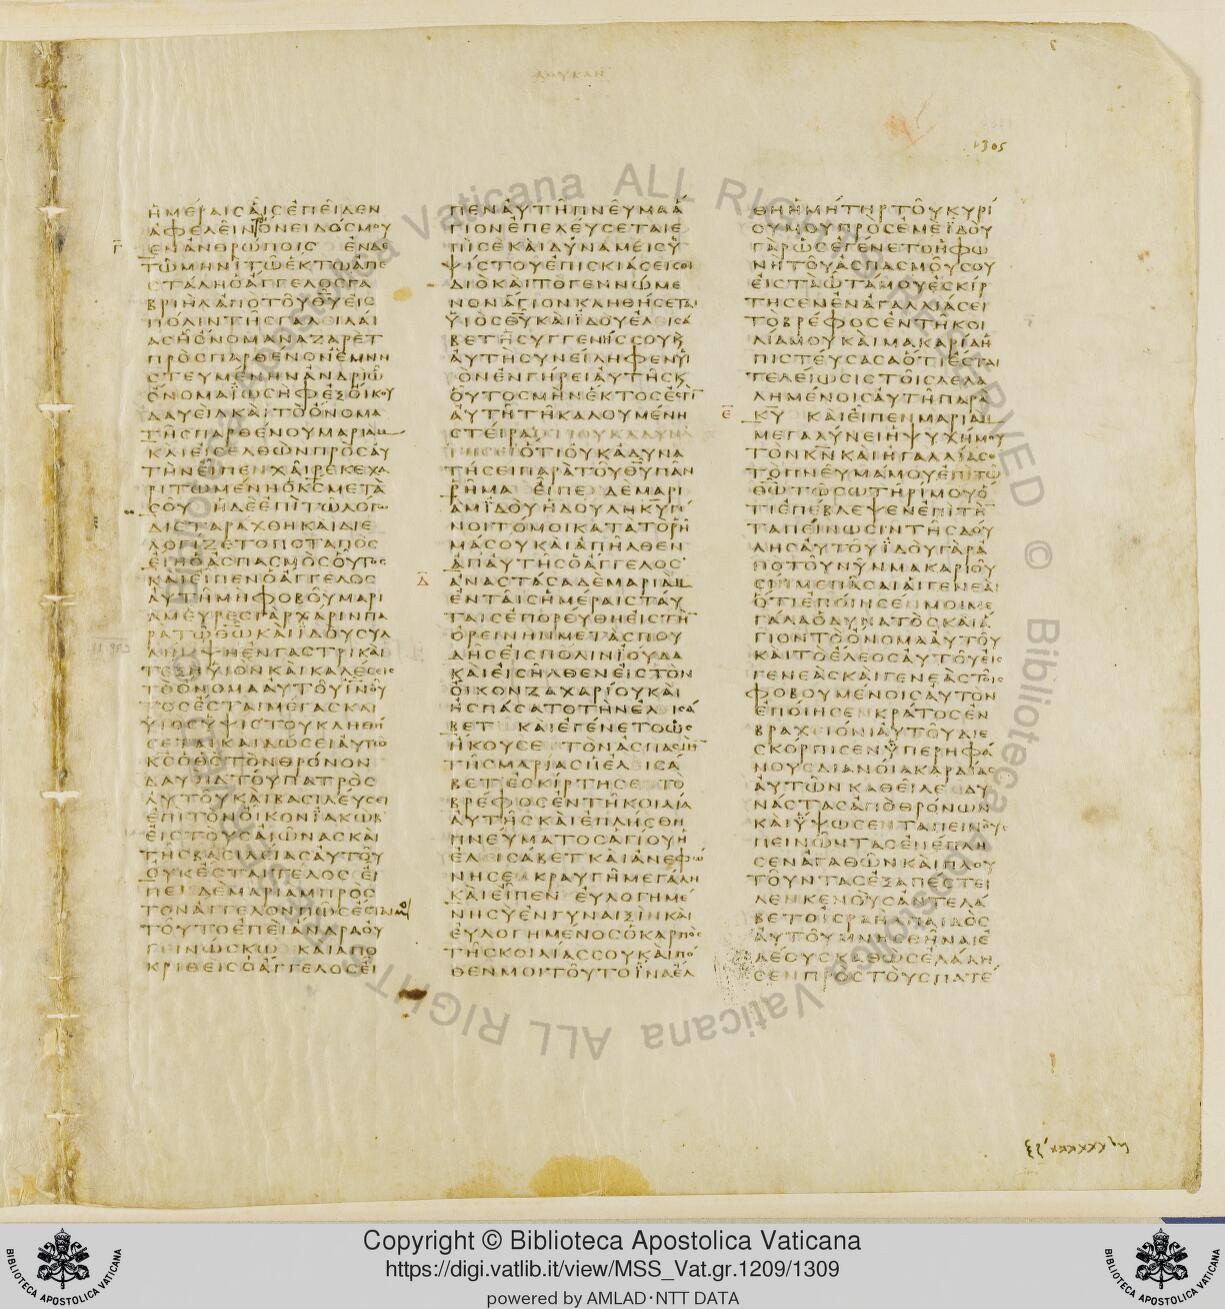 ΛΟΥΚΑΝ
1305
ΗΜΕΡΑΙΣΑΙΣΕΠΕΙΔΕΝ
ΑΦΕΛΕΙΝΟΝΕΙΔΟΣΜΟΥ
Γ
ΕΝΑΝΘΡΩΠΟΙΣ ΕΝΔΕ
ΤΩΜΗΝΙΤΩΕΚΤΩΑΠΕ
ΣΤΑΛΗΟΑΓΓΕΛΟΣΓΑ
ΒΡΙΗΛΑΠΟΤΟΥΘΥΕΙΣ
ΠΟΛΙΝΤΗΣΓΑΛΕΙΛΑΙ
ΑΣΗΟΝΟΜΑΝΑΖΑΡΕΤ
ΠΡΟΣΠΑΡΘΕΝΟΝΕΜΝΗ
ΣΤΕΥΜΕΝΗΝΑΝΔΡΙΩ
ΟΝΟΜΑΙΩΣΗΦΕΞΟΙΚΟΥ
ΔΑΥΕΙΔΚΑΙΤΟΟΝΟΜΑ
ΤΗΣΠΑΡΘΕΝΟΥΜΑΡΙΑΜ
ΚΑΙΕΙΣΕΛΘΩΝΠΡΟΣΑΥ
ΤΗΝΕΙΠΕΝΧΑΙΡΕΚΕΧΑ
ΡΙΤΩΜΕΝΗΟΚΣΜΕΤΑ
ΣΟΥ ΗΔΕΕΠΙΤΩΛΟΓΩ
ΔΙΕΤΑΡΑΧΘΗΚΑΙΔΙΕ
ΛΟΓΙΖΕΤΟΠΟΤΑΠΟΣ
ΕΙΗΟΑΣΠΑΣΜΟΣΟΥΤΟΣ
ΚΑΙΕΙΠΕΝΟΑΓΓΕΛΟΣ
ΑΥΤΗΜΗΦΟΒΟΥΜΑΡΙ
ΑΜΕΥΡΕΣΓΑΡΧΑΡΙΝΠΑ
ΡΑΤΩΘΩΚΑΙΙΔΟΥΣΥΛ
ΛΗΜΨΗΕΝΓΑΣΤΡΙΚΑΙ
ΤΕΞΗΥΙΟΝΚΑΙΚΑΛΕΣΕΙΣ
ΤΟΟΝΟΜΑΑΥΤΟΥΙΝΟΥ
ΤΟΣΕΣΤΑΙΜΕΓΑΣΚΑΙ
ΥΙΟΣΥΨΙΣΤΟΥΚΛΗΘΗ
ΣΕΤΑΙΚΑΙΔΩΣΕΙΑΥΤΩ
ΚΣΟΘΣΤΟΝΘΡΟΝΟΝ
ΔΑΥΕΙΔΤΟΥΠΑΤΡΟΣ
ΑΥΤΟΥΚΑΙΒΑΣΙΛΕΥΣΕΙ
ΕΠΙΤΟΝΟΙΚΟΝΙΑΚΩΒ
ΕΙΣΤΟΥΣΑΙΩΝΑΣΚΑΙ
ΤΗΣΒΑΣΙΛΕΙΑΣΑΥΤΟΥ
ΟΥΚΕΣΤΑΙΤΕΛΟΣ ΕΙ
ΠΕΝΔΕΜΑΡΙΑΜΠΡΟΣ
ΤΟΝΑΓΓΕΛΟΝΠΩΣΕΣΤΑΙ
ΤΟΥΤΟΕΠΕΙΑΝΔΡΑΟΥ
ΓΕΙΝΩΣΚΩ ΚΑΙΑΠΟ
ΚΡΙΘΕΙΣΟΑΓΓΕΛΟΣΕΙ
ΠΕΝΑΥΤΗΠΝΕΥΜΑΑ
ΓΙΟΝΕΠΕΛΕΥΣΕΤΑΙΕ
ΠΙΣΕΚΑΙΔΥΝΑΜΕΙΣΥ
ΨΙΣΤΟΥΕΠΙΣΚΙΑΣΕΙΣΟΙ
ΔΙΟΚΑΙΤΟΓΕΝΝΩΜΕ
ΝΟΝΑΓΙΟΝΚΛΗΘΗΣΕΤΑΙ
ΥΙΟΣΘΥΚΑΙΙΔΟΥΕΛΕΙΣΑ
ΒΕΤΗΣΥΓΓΕΝΙΣΣΟΥΚ
ΑΥΤΗΣΥΝΕΙΛΗΦΕΝΥΙ
ΟΝΕΝΓΗΡΕΙΑΥΤΗΣΚ
ΟΥΤΟΣΜΗΝΕΚΤΟΣΕΣΤΙ
ΑΥΤΗΤΗΚΑΛΟΥΜΕΝΗ
ΣΤΕΙΡΑ
ΟΤΙΟΥΚΑΔΥΝΑ
ΤΗΣΕΙΠΑΡΑΤΟΥΘΥΠΑΝ
ΡΗΜΑ ΕΙΠΕΝΔΕΜΑΡΙ
ΑΜΙΔΟΥΗΔΟΥΛΗΚΥΓΕ
ΝΟΙΤΟΜΟΙΚΑΤΑΤΟΡΗ
ΜΑΣΟΥΚΑΙΑΠΗΛΘΕΝ
ΑΠΑΥΤΗΣΟΑΓΓΕΛΟΣ
Δ
ΑΝΑΣΤΑΣΑΔΕΜΑΡΙΑΜ
ΕΝΤΑΙΣΗΜΕΡΑΙΣΤΑΥ
ΤΑΙΣΕΠΟΡΕΥΘΗΕΙΣΤΗ
ΟΡΕΙΝΗΝΜΕΤΑΣΠΟΥ
ΔΗΣΕΙΣΠΟΛΙΝΙΟΥΔΑ
ΚΑΙΕΙΣΗΛΘΕΝΕΙΣΤΟΝ
ΟΙΚΟΝΖΑΧΑΡΙΟΥΚΑΙ
ΗΣΠΑΣΑΤΟΤΗΝΕΛΕΙΣΑ
ΒΕΤ ΚΑΙΕΓΕΝΕΤΟΩΣ
ΗΚΟΥΣΕΝΤΟΝΑΣΠΑΣΜΟ
ΤΗΣΜΑΡΙΑΣΗΕΛΕΙΣΑ
ΒΕΤΕΣΚΙΡΤΗΣΕ ΤΟ
ΒΡΕΦΟΣΕΝΤΗΚΟΙΛΙΑ
ΑΥΤΗΣΚΑΙΕΠΛΗΣΘΗ
ΠΝΕΥΜΑΤΟΣΑΓΙΟΥΗ
ΕΛΕΙΣΑΒΕΤΚΑΙΑΝΕΦΩ
ΝΗΣΕΝΚΡΑΥΓΗΜΕΓΑΛΗ
ΚΑΙΕΙΠΕΝ ΕΥΛΟΓΗΜΕ
ΝΗΣΥΕΝΓΥΝΑΙΞΙΝΚΑΙ
ΕΥΛΟΓΗΜΕΝΟΣΟΚΑΡΠΟΣ
ΤΗΣΚΟΙΛΙΑΣΣΟΥΚΑΙΠΟ
ΘΕΝΜΟΙΤΟΥΤΟΙΝΑΕΛ
ΘΗΗΜΗΤΗΡΤΟΥΚΥΡΙ
ΟΥΜΟΥΠΡΟΣΕΜΕΙΔΟΥ
ΓΑΡΩΣΕΓΕΝΕΤΟΗΦΩ
ΝΗΤΟΥΑΣΠΑΣΜΟΥΣΟΥ
ΕΙΣΤΑΩΤΑΜΟΥΕΣΚΙΡ
ΤΗΣΕΝΕΝΑΓΑΛΛΙΑΣΕΙ
ΤΟΒΡΕΦΟΣΕΝΤΗΚΟΙ
ΛΙΑΜΟΥΚΑΙΜΑΚΑΡΙΑΗ
ΠΙΣΤΕΥΣΑΣΑΟΤΙΕΣΤΑΙ
ΤΕΛΕΙΩΣΙΣΤΟΙΣΛΕΛΑ
ΛΗΜΕΝΟΙΣΑΥΤΗΠΑΡΑ
Ε
ΚΥ ΚΑΙΕΙΠΕΝΜΑΡΙΑΜ
ΜΕΓΑΛΥΝΕΙΗΨΥΧΗΜΟΥ
ΤΟΝΚΝΚΑΙΗΓΑΛΛΙΑΣΕ
ΤΟΠΝΕΥΜΑΜΟΥΕΠΙΤΩ
ΘΩΤΩΣΩΤΗΡΙΜΟΥΟ
ΤΙΕΠΕΒΛΕΨΕΝΕΠΙΤΗ
ΤΑΠΕΙΝΩΣΙΝΤΗΣΔΟΥ
ΛΗΣΑΥΤΟΥΙΔΟΥΓΑΡΑ
ΠΟΤΟΥΝΥΝΜΑΚΑΡΙΟΥ
ΣΙΝΜΕΠΑΣΑΙΑΙΓΕΝΕΑΙ
ΟΤΙΕΠΟΙΗΣΕΝΜΟΙΜΕ
ΓΑΛΑΟΔΥΝΑΤΟΣΚΑΙΑ
ΓΙΟΝΤΟΟΝΟΜΑΑΥΤΟΥ
ΚΑΙΤΟΕΛΕΟΣΑΥΤΟΥΕΙΣ
ΓΕΝΕΑΣΚΑΙΓΕΝΕΑΣΤΟΙΣ
ΦΟΒΟΥΜΕΝΟΙΣΑΥΤΟΝ
ΕΠΟΙΗΣΕΝΚΡΑΤΟΣΕΝ
ΒΡΑΧΕΙΟΝΙΑΥΤΟΥΔΙΕ
ΣΚΟΡΠΙΣΕΝΥΠΕΡΗΦΑ
ΝΟΥΣΔΙΑΝΟΙΑΚΑΡΔΙΑΣ
ΑΥΤΩΝΚΑΘΕΙΛΕ ΔΥ
ΝΑΣΤΑΣΑΠΟΘΡΟΝΩΝ
ΚΑΙΥΨΩΣΕΝΤΑΠΕΙΝΟΥΣ
ΠΕΙΝΩΝΤΑΣΕΝΕΠΛΗ
ΣΕΝΑΓΑΘΩΝΚΑΙΠΛΟΥ
ΤΟΥΝΤΑΣΕΞΑΠΕΣΤΕΙ
ΛΕΝΚΕΝΟΥΣΑΝΤΕΛΑ
ΒΕΤΟΙΣΡΑΗΛΠΑΙΔΟΣ
ΑΥΤΟΥΜΝΗΣΘΗΝΑΙΕ
ΛΕΟΥΣΚΑΘΩΣΕΛΑΛΗ
ΣΕΝΠΡΟΣΤΟΥΣΠΑΤΕ
Copyright © Biblioteca Apostolica Vaticana
https://digi.vatlib.it/view/MSS_Vat.gr.1209/1309
powered by AMLAD·NTT DATA
BIBLIOTECA APOSTOLICA VATICANA
BIBLIOTECA APOSTOLICA VATICANA